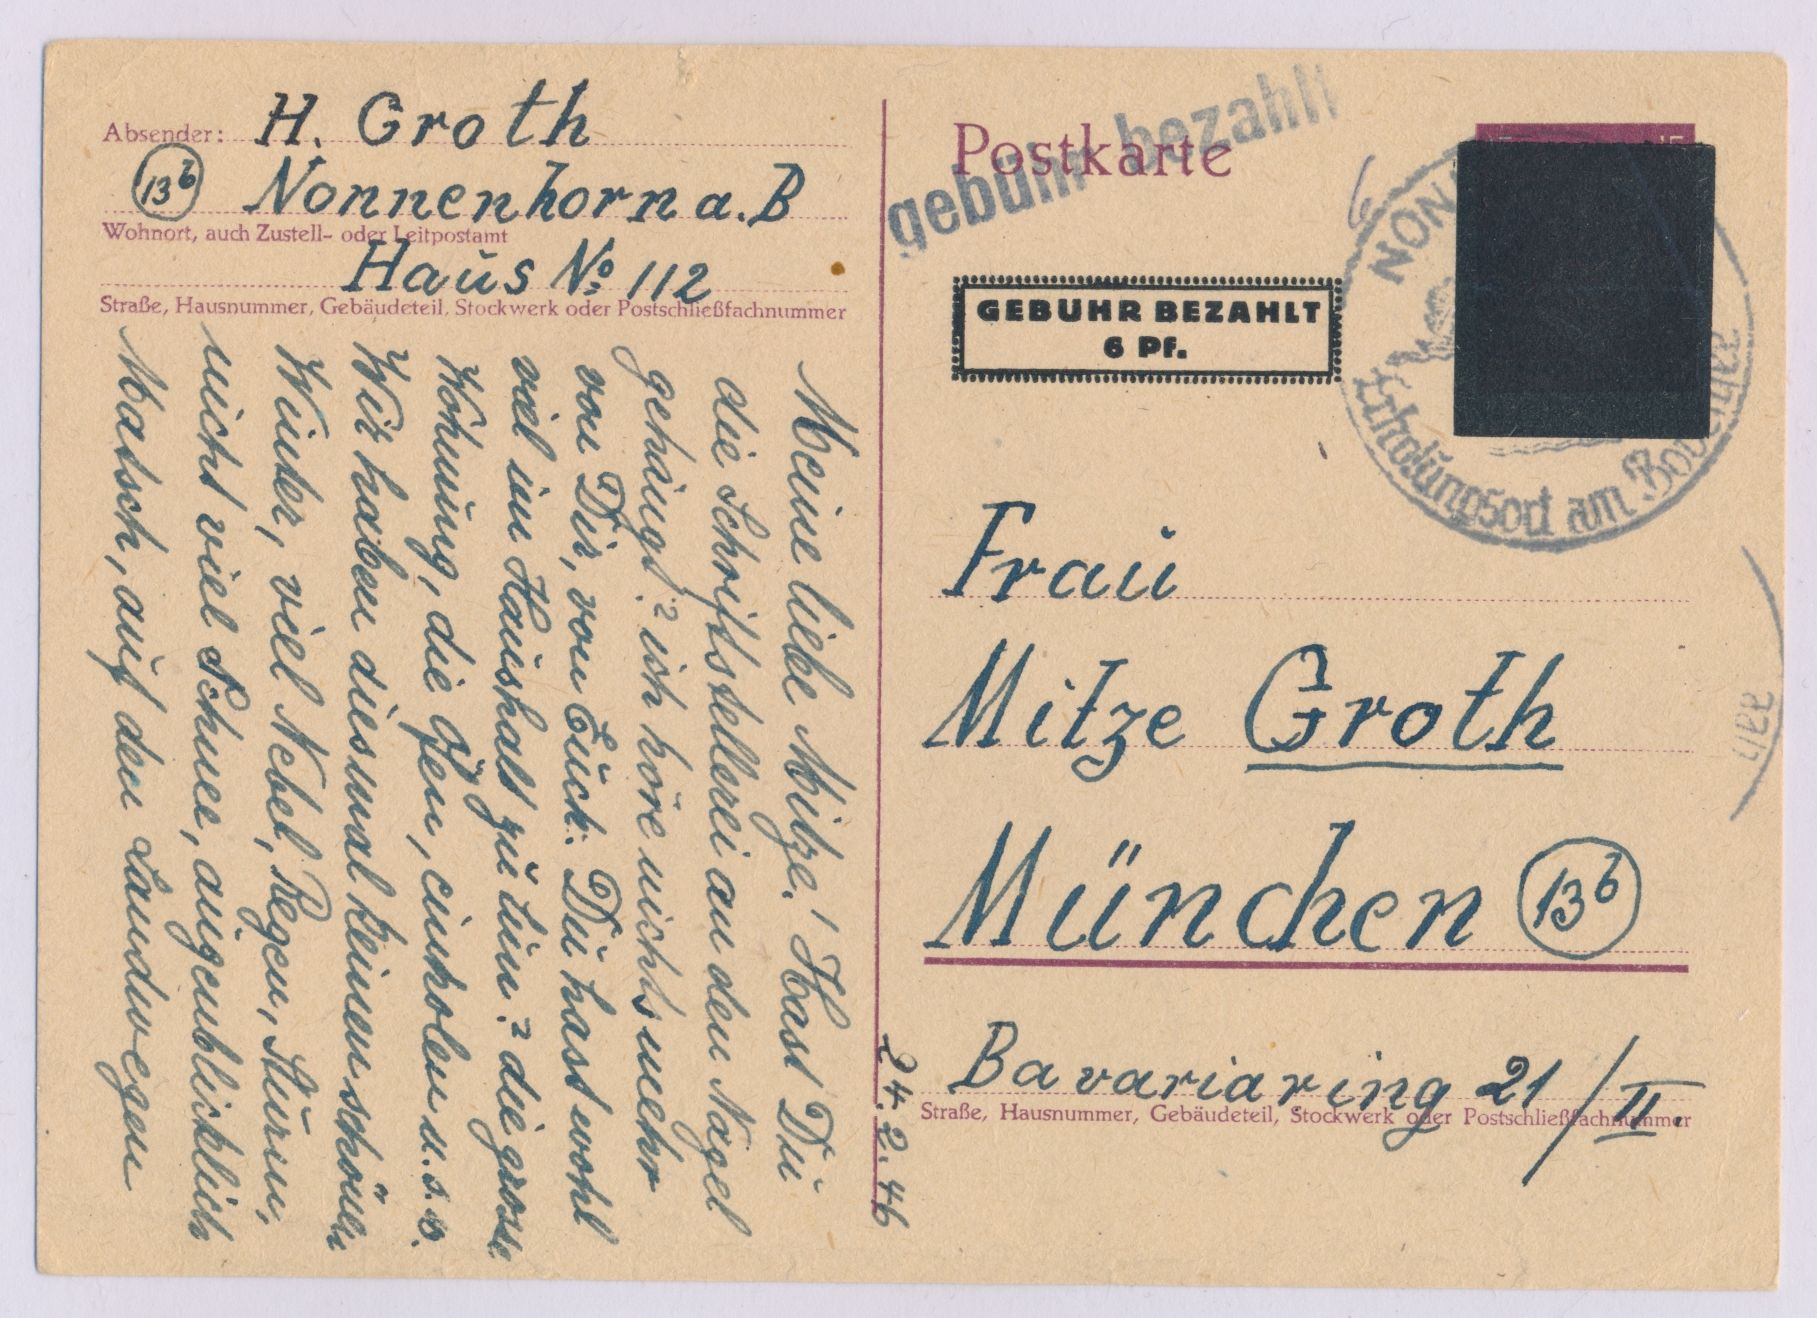 Absender: H. Groth
13b Nonnenhorn a. B
Wohnort, auch Zustell- oder Leitpostamt
Haus No 112
Straße, Hausnummer, Gebäudeteil, Stockwerk oder Postschließfachnummer
Meine liebe Mitze! Hast Du
die Schriftstellerei an den Nagel
gehängt? ich höre nichts mehr
von Dir, von Euch. Du hast wohl
viel im Haushalt zu tun? die grosse
Wohnung, die Öfen, einholen u.s.w.
Wir haben diesmal keinen schönen
Winter, viel Nebel, Regen, Sturm,
nicht viel Schnee, augenblicklich
Matsch, auf den Landwegen
24.2.46
Postkarte
gebühr bezahlt
GEBÜHR BEZAHLT
6 Pf.
6
15
NON
Erholungsort am Bodensee
Frau
Mitze Groth
München 13b
Bavariaring 21/II.
Straße, Hausnummer, Gebäudeteil, Stockwerk oder Postschließfachnummer